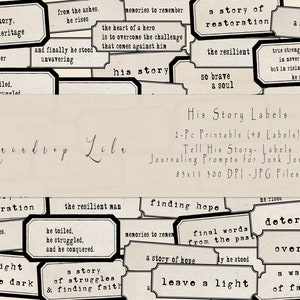 a story.
heritage
from the ashes,
he rises
memories to remember
a story of
restoration
the heart of a hero
is to overcome the challenge
that comes against him
and finally he stood
unwavering
his story
the resilient
true strong
is never
in
so brave
a soul
His Story Labels
2-Pc Printable (48 Labels)
Tell His Story- Labels
Journaling Prompts for Junk Jou
85x11 300 DPI -JPG Files
Life
the resilient man
finding hope
memories to remember
he toiled,
he struggled,
and he conquered.
final words
from the past
deter
a story of hope
a story
of struggles
& finding faith
leave a light
light
dark